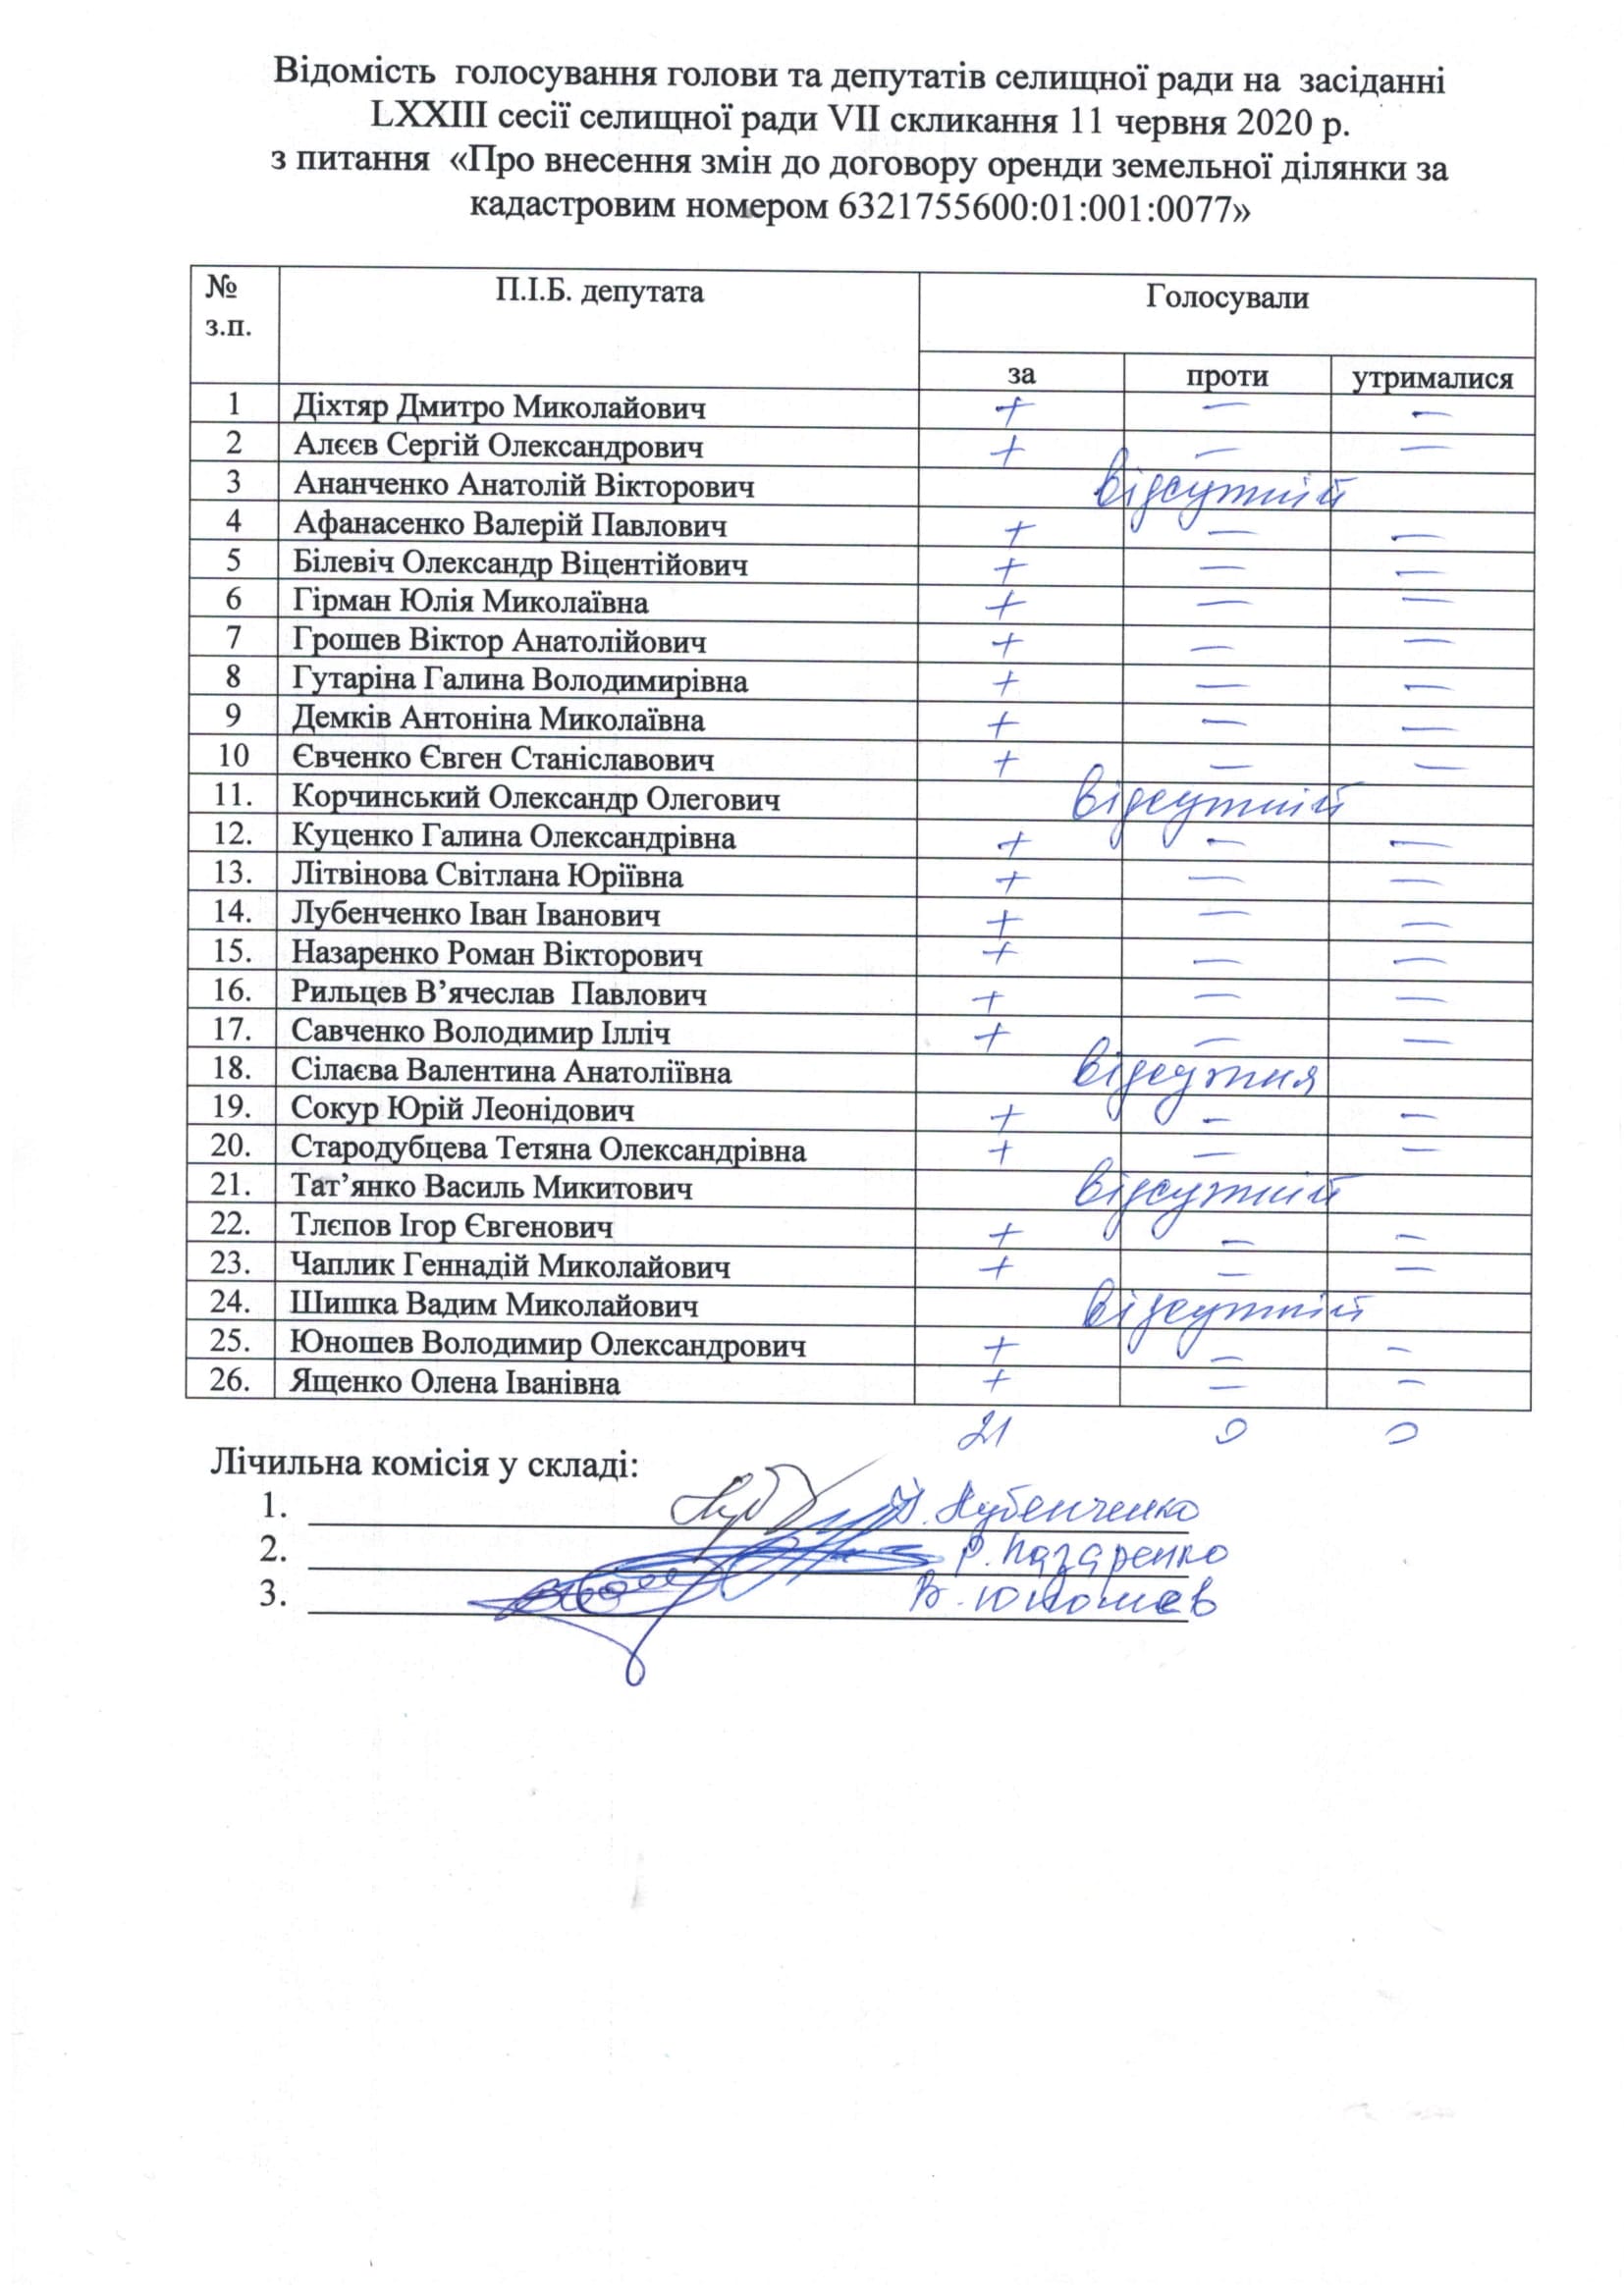 Відомість голосування голови та депутатів селищної ради на засіданні
LXXIII сесії селищної ради VII скликання 11 червня 2020 р.
з питання «Про внесення змін до договору оренди земельної ділянки за
кадастровим номером 6321755600:01:001:0077»
№ з.п. П.І.Б. депутата Голосували
за проти утрималися
1 Діхтяр Дмитро Миколайович + — —
2 Алєєв Сергій Олександрович + — —
3 Ананченко Анатолій Вікторович відсутній
4 Афанасенко Валерій Павлович + — —
5 Білевіч Олександр Віцентійович + — —
6 Гірман Юлія Миколаївна + — —
7 Грошев Віктор Анатолійович + — —
8 Гутаріна Галина Володимирівна + — —
9 Демків Антоніна Миколаївна + — —
10 Євченко Євген Станіславович + — —
11. Корчинський Олександр Олегович відсутній
12. Куценко Галина Олександрівна + — —
13. Літвінова Світлана Юріївна + — —
14. Лубенченко Іван Іванович + — —
15. Назаренко Роман Вікторович + — —
16. Рильцев В’ячеслав Павлович + — —
17. Савченко Володимир Ілліч + — —
18. Сілаєва Валентина Анатоліївна відсутня
19. Сокур Юрій Леонідович + — —
20. Стародубцева Тетяна Олександрівна + — —
21. Тат’янко Василь Микитович відсутній
22. Тлєпов Ігор Євгенович + — —
23. Чаплик Геннадій Миколайович + — —
24. Шишка Вадим Миколайович відсутній
25. Юношев Володимир Олександрович + — —
26. Ященко Олена Іванівна + — —
21 0 0
Лічильна комісія у складі:
1. І. Лубенченко
2. Р. Назаренко
3. В. Юношев